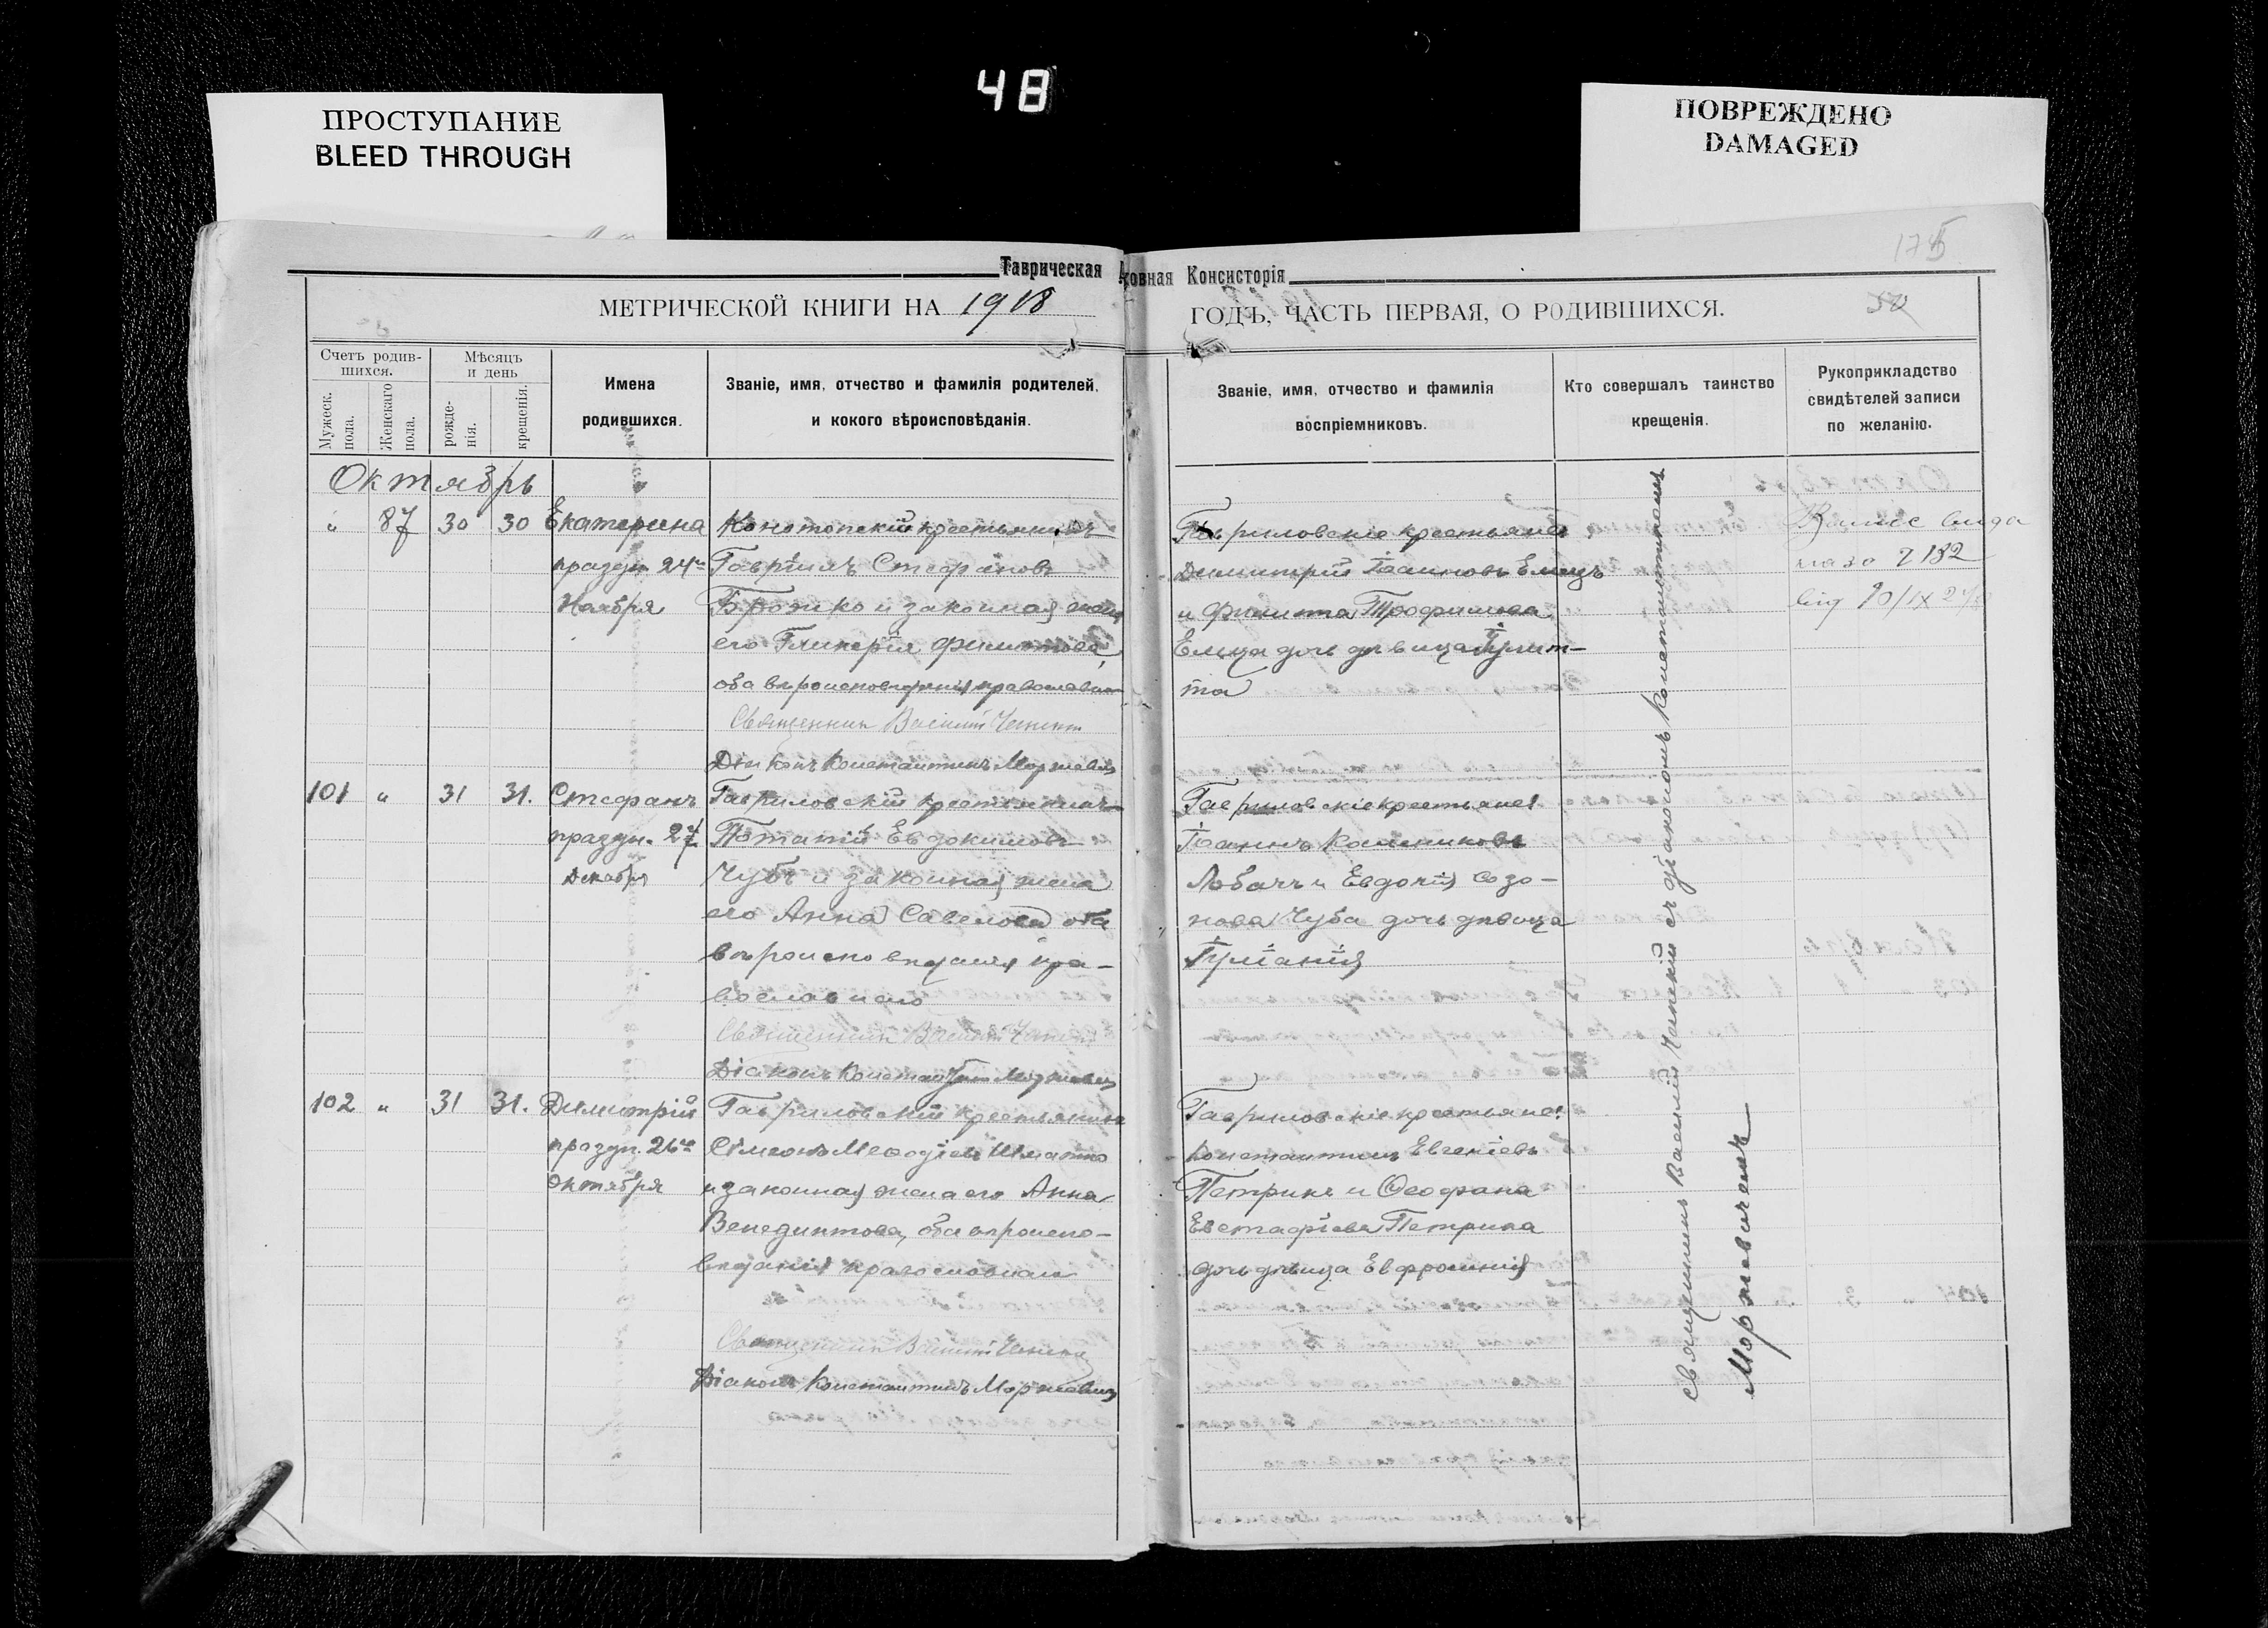 48
ПРОСТУПАНИЕ
BLEED THROUGH
ПОВРЕЖДЕНО
DAMAGED
Таврическая
ховная Консисторія
МЕТРИЧЕСКОЙ КНИГИ НА 1918
ГОДЪ, ЧАСТЬ ПЕРВАЯ, О РОДИВШИХСЯ.
Счетъ родив-
шихся.
Мужеск.
пола.
Женскаго
пола.
Мѣсяцъ
и день
рожде-
нія.
крещенія.
Имена
родившихся.
Званіе, имя, отчество и фамилія родителей,
и кокого вѣроисповѣданія.
Званіе, имя, отчество и фамилія
воспріемниковъ.
Кто совершалъ таинство
крещенія.
Рукоприкладство
свидѣтелей записи
по желанію.
Октябрь
" 87 30 30 Екатерина
праздн. 24го
Ноября
Конотопскій крестьянинъ
Гавріилъ Стефановъ
и законная жена
его Гликерія Филиппова,
оба вѣроисповѣданія православнаго
Священникъ Василій
Діаконъ Константинъ Моржевичъ
Гавриловскіе крестьяне:
Димитрій Іоанновъ Елецъ
и Трофимова
Ельца дочь дѣвица Іулит-
та
101 " 31 31. Стефанъ
праздн. 27
Декабря
Гавриловскій крестьянинъ
Потапій Евдокимовъ
Чубъ и законная жена
его Анна Савелова оба
вѣроисповѣданія пра-
вославнаго
Священникъ Василій
Діаконъ Константинъ Моржевичъ
Гавриловскіе крестьяне:
Іоаннъ Калинниковъ
Лобачъ и Евдокія Созо-
нова Чуба дочь дѣвица
Іуліанія
102 " 31 31. Димитрій
праздн. 26го
Октября
Гавриловскій крестьянинъ
Симеонъ Меѳодіевъ Шматко
и законная жена его Анна
Венедиктова, оба вѣроиспо-
вѣданія православнаго
Священникъ Василій
Діаконъ Константинъ Моржевичъ
Гавриловскіе крестьяне:
Константинъ Евгеніевъ
Петрикъ и Ѳеофана
Евстафіева Петрика
дочь дѣвица Евфросинія
Священникъ Василій съ діакономъ Константиномъ
Моржевичемъ